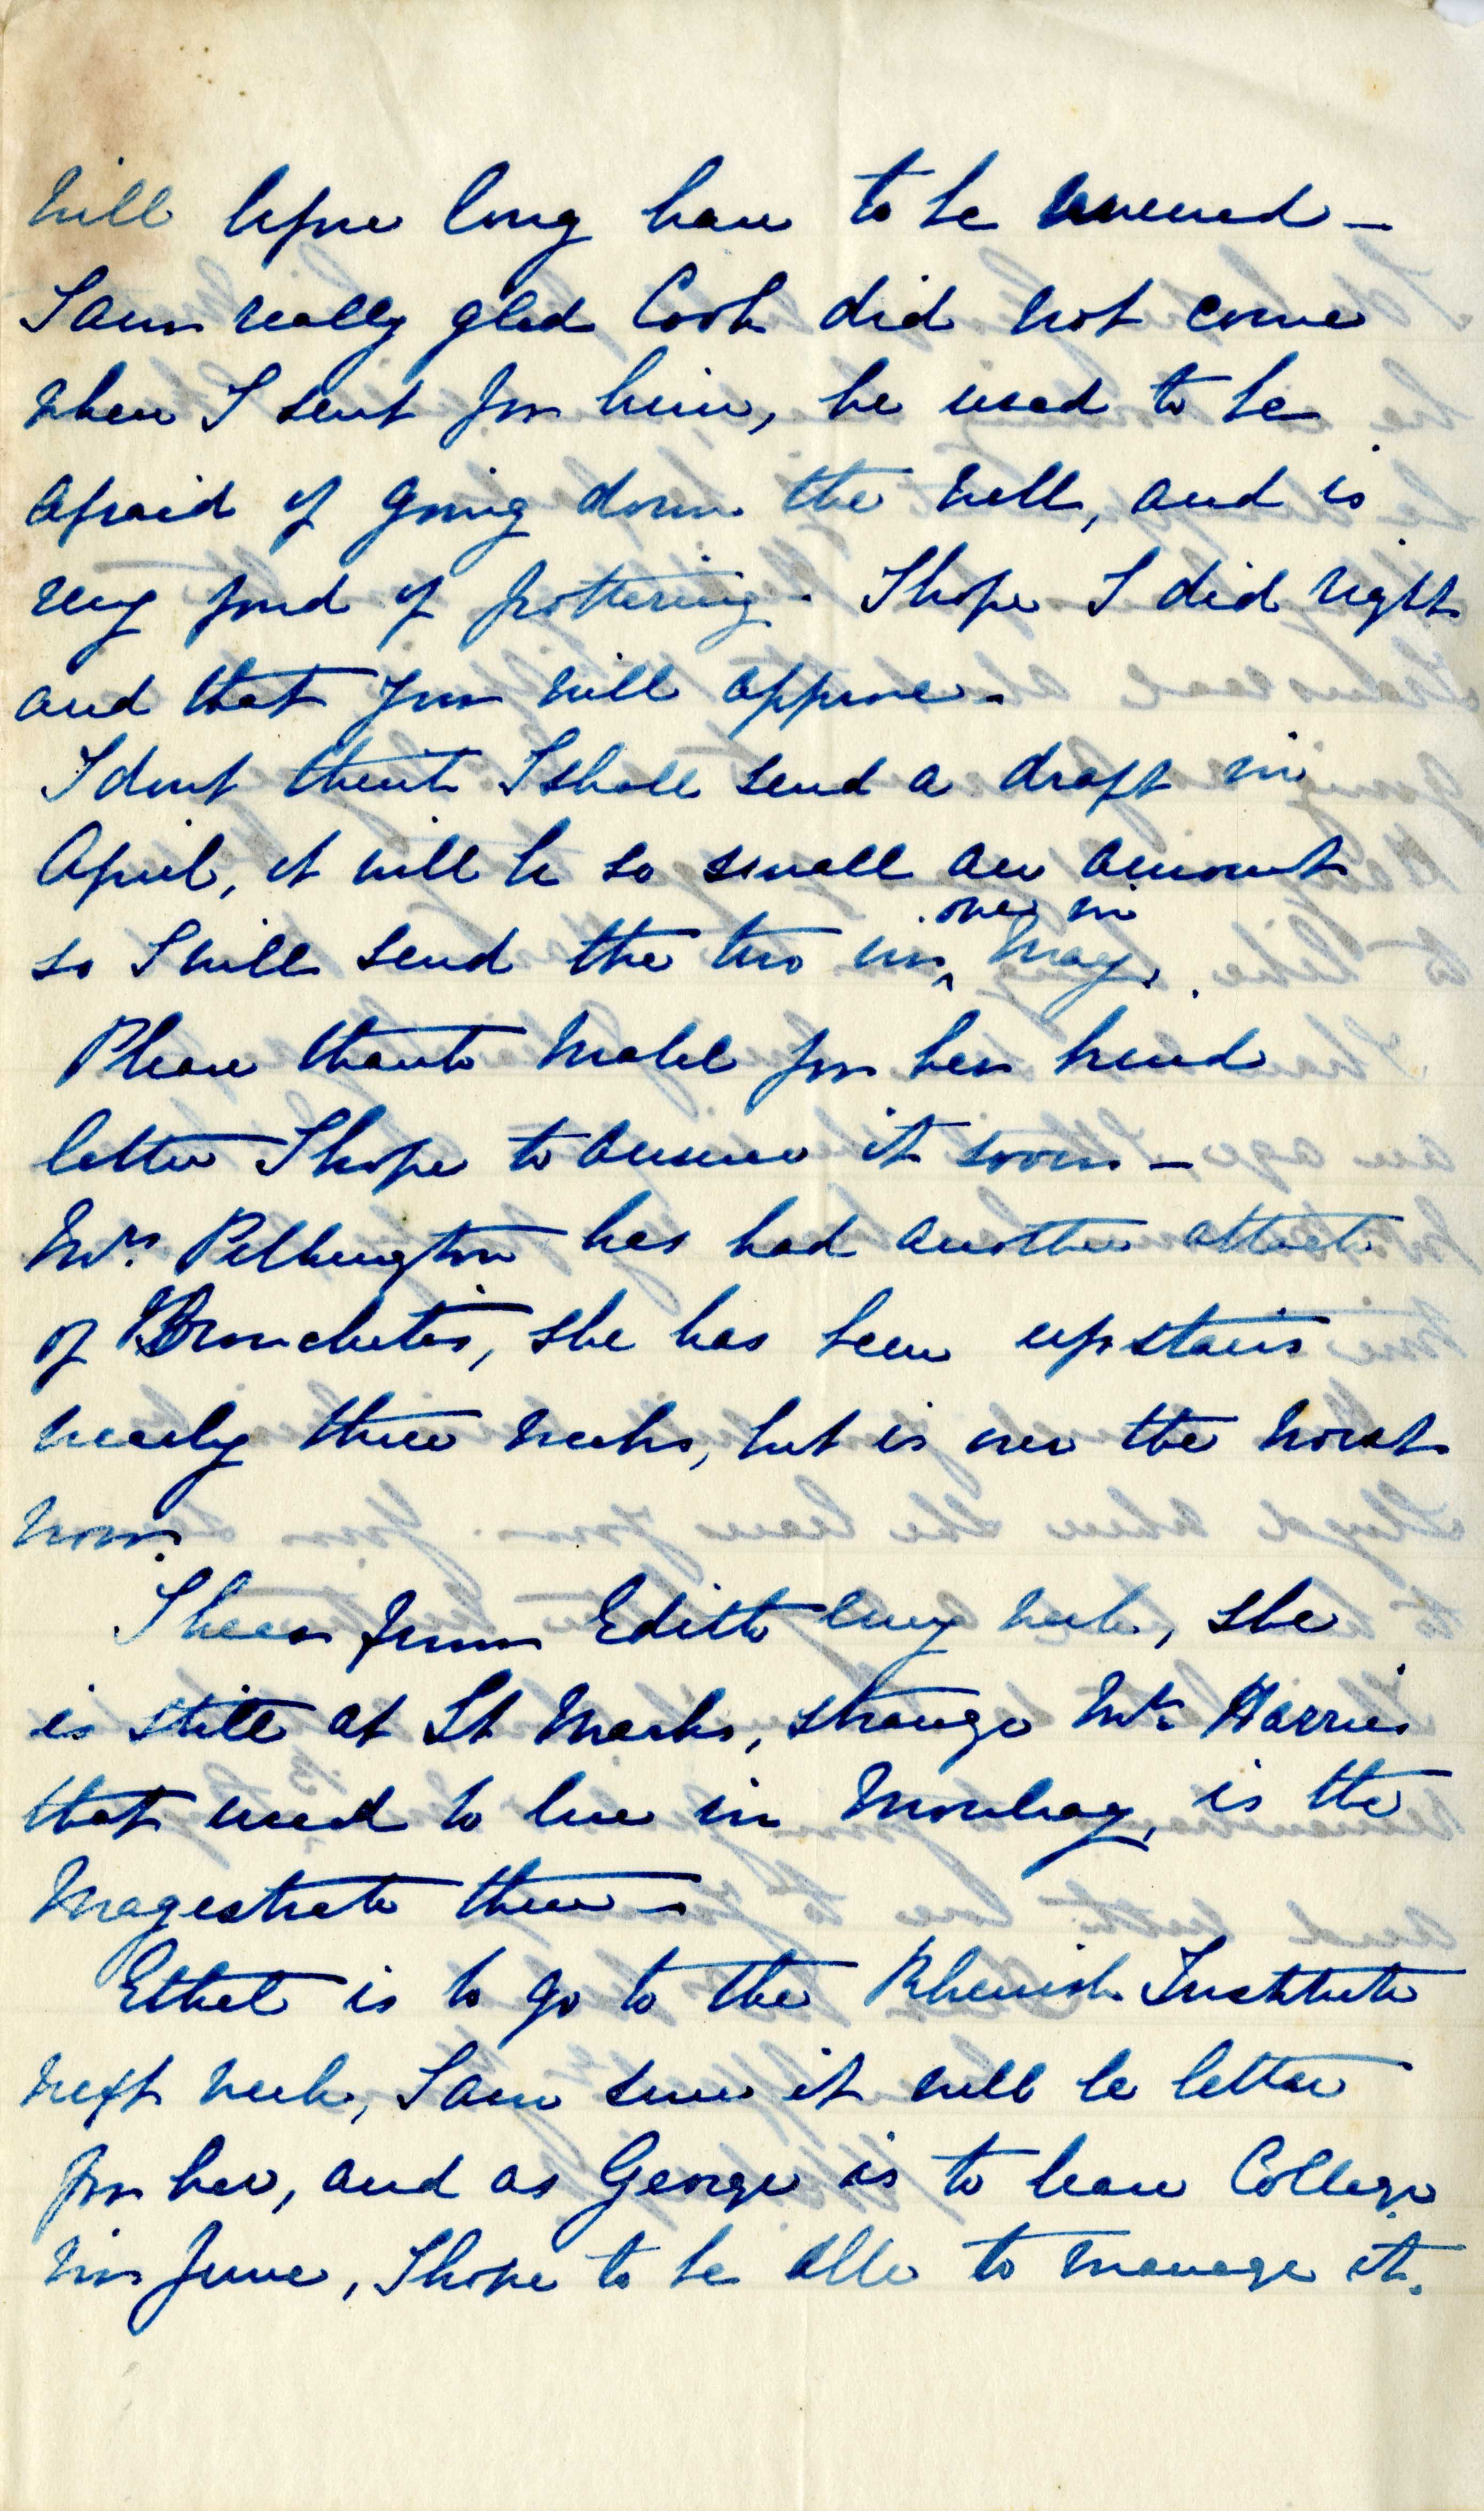 will before long have to be renewed –
I am really glad Cook did not come
when I sent for him, he used to be
afraid of going down the well, and is
very fond of pottering – I hope I did right
and that you will approve –
I dont think I shall send a draft in
April, it will be so small an amount
so I will send the two in one in May.
Please thank Mabel for her kind
letter I hope to answer it soon –
Mrs. Pilkington has had another attack
of Bronchitis, she has been upstairs
nearly three weeks, but is over the worst
now.
I hear from Edith every week, she
is still at St Marks, strange Mr Harries
that used to live in Mowbray, is the
Magestrate there –
Ethel is to go to the Rhenish Institute
next week, I am sure it will be better
for her, and as George is to leave College
in June, I hope to be able to manage it.